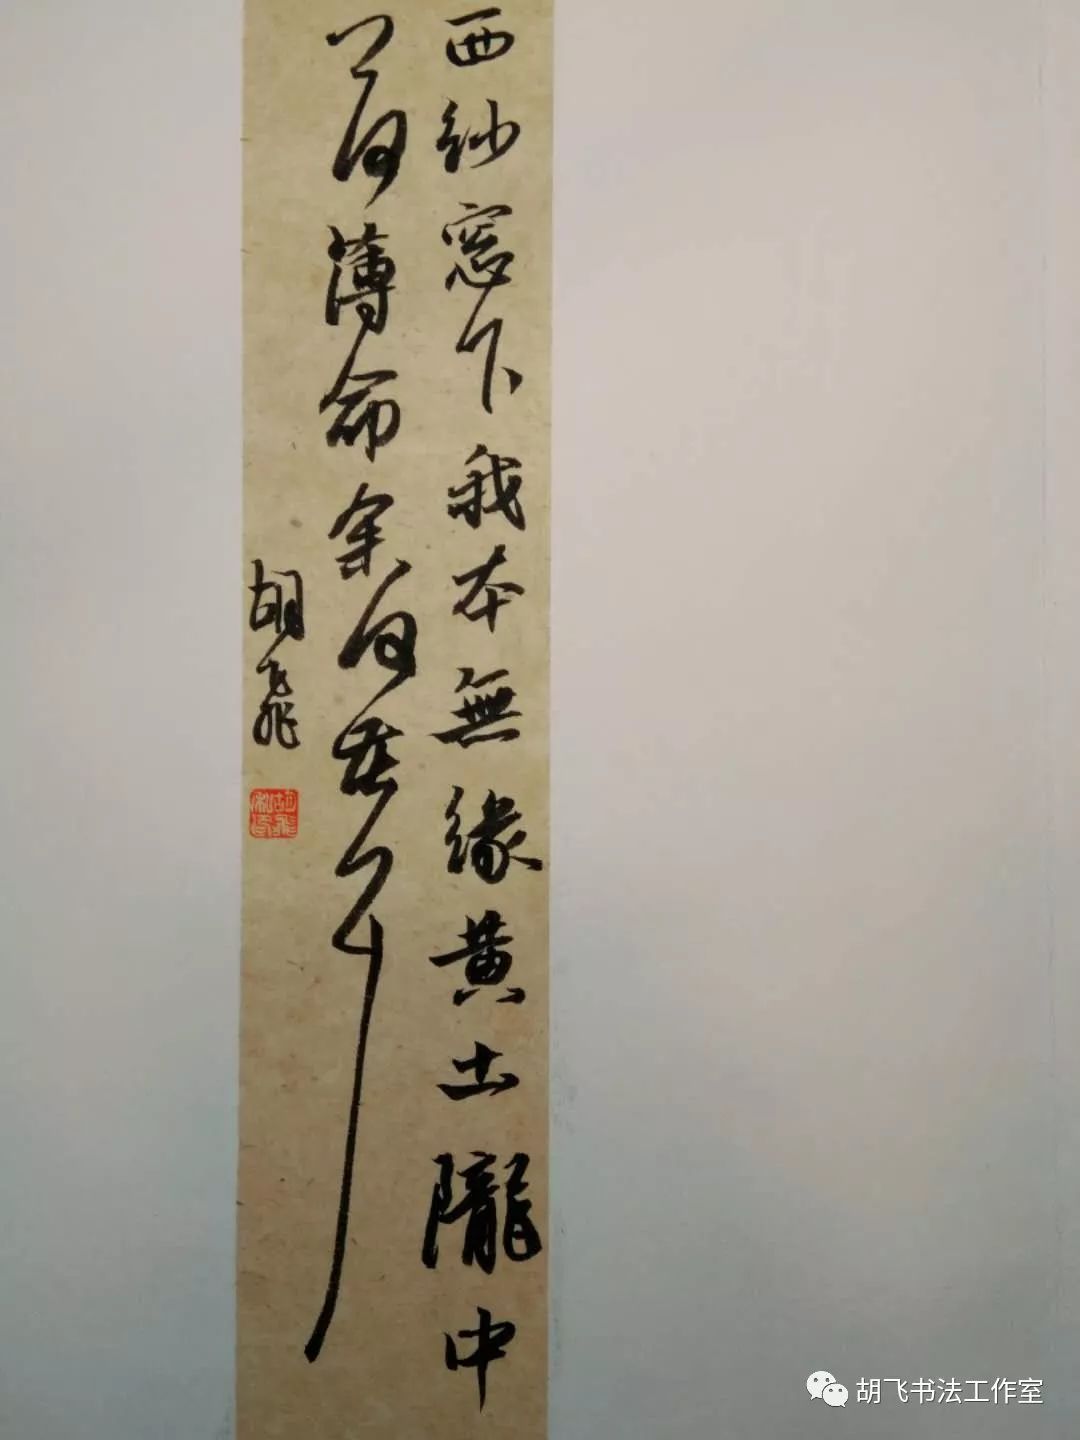 西紗窓下我本無緣黄土隴中
卿何薄命余何
胡飛
胡飛私印
胡飞书法工作室